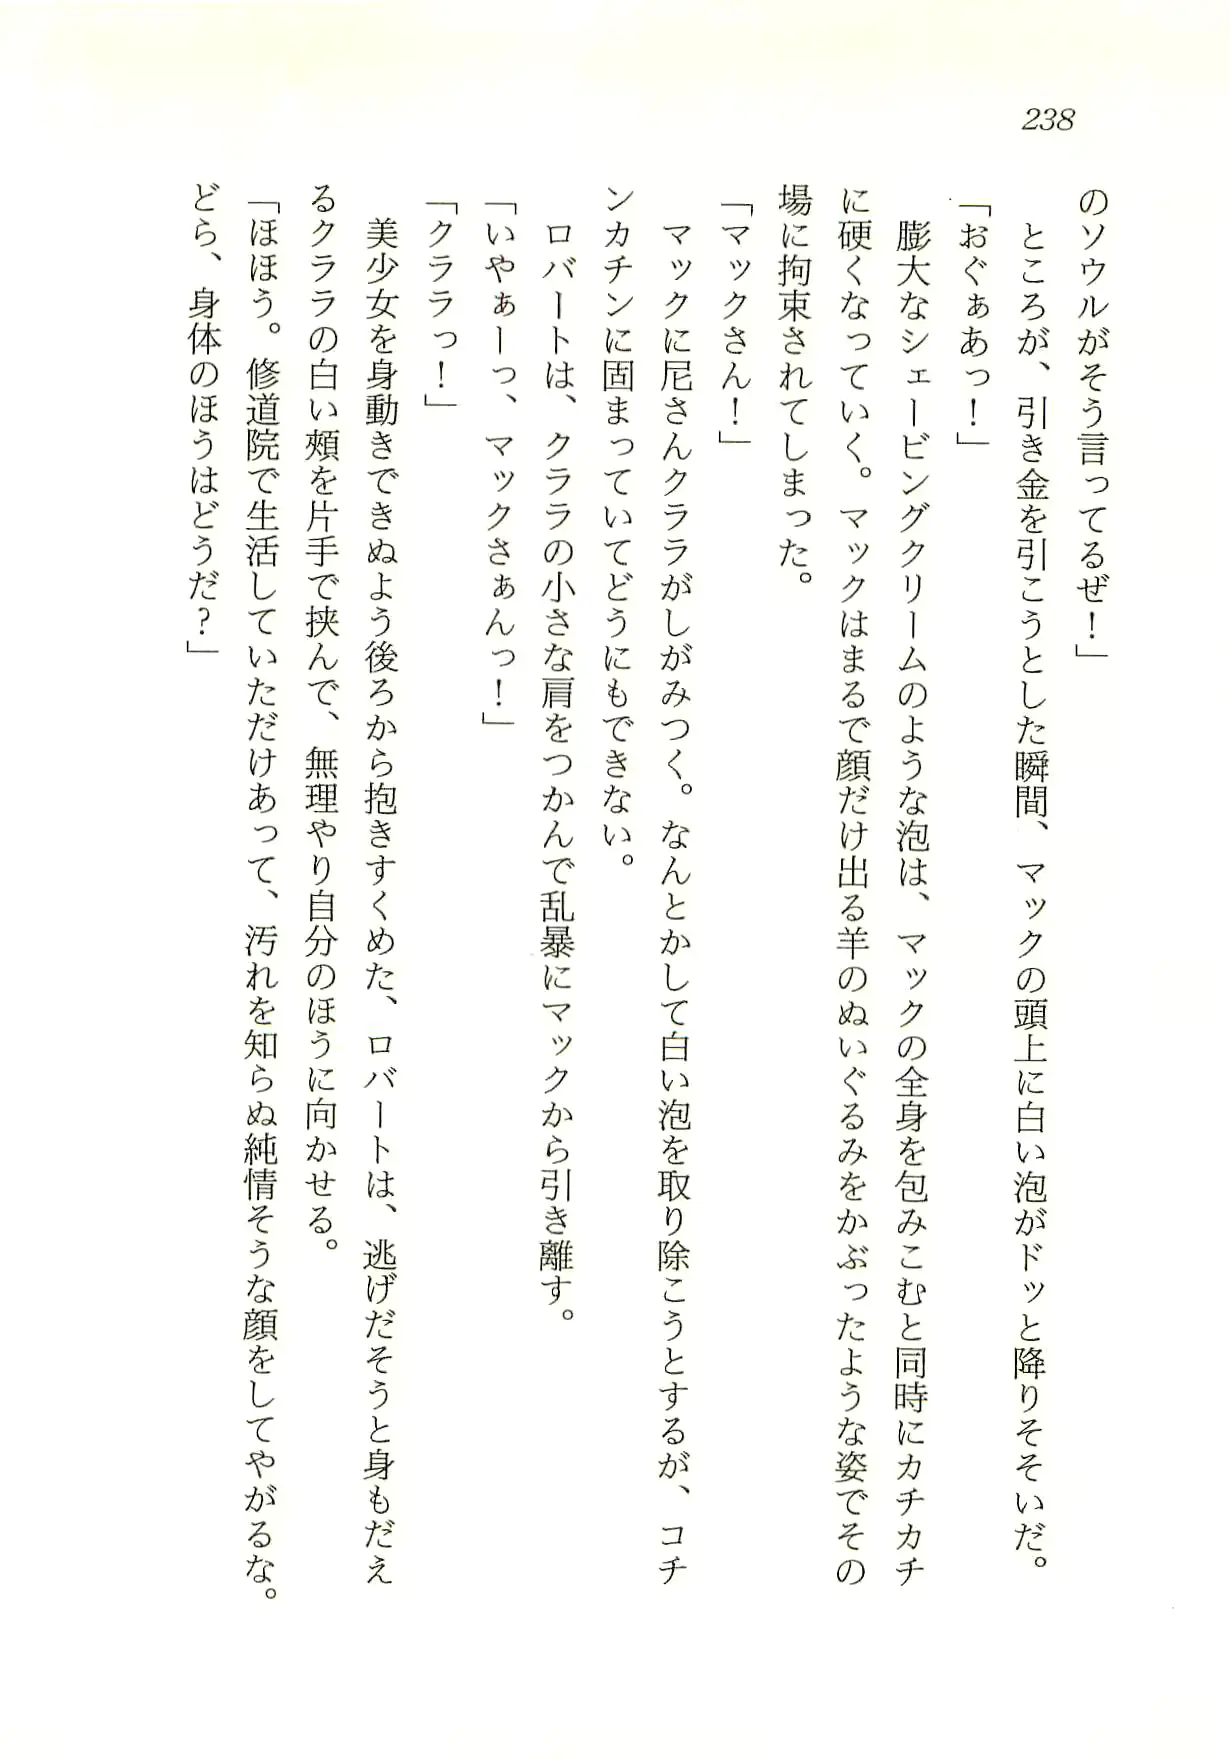 238
のソウルがそう言ってるぜ！」
　ところが、引き金を引こうとした瞬間、マックの頭上に白い泡がドッと降りそそいだ。
「おぐぁあっ！」
　膨大なシェービングクリームのような泡は、マックの全身を包みこむと同時にカチカチ
に硬くなっていく。マックはまるで顔だけ出る羊のぬいぐるみをかぶったような姿でその
場に拘束されてしまった。
「マックさん！」
　マックに尼さんクララがしがみつく。なんとかして白い泡を取り除こうとするが、コチ
ンカチンに固まっていてどうにもできない。
　ロバートは、クララの小さな肩をつかんで乱暴にマックから引き離す。
「いやぁーっ、マックさぁんっ！」
「クララっ！」
　美少女を身動きできぬよう後ろから抱きすくめた、ロバートは、逃げだそうと身もだえ
るクララの白い頰を片手で挟んで、無理やり自分のほうに向かせる。
「ほほう。修道院で生活していただけあって、汚れを知らぬ純情そうな顔をしてやがるな。
どら、身体のほうはどうだ？」